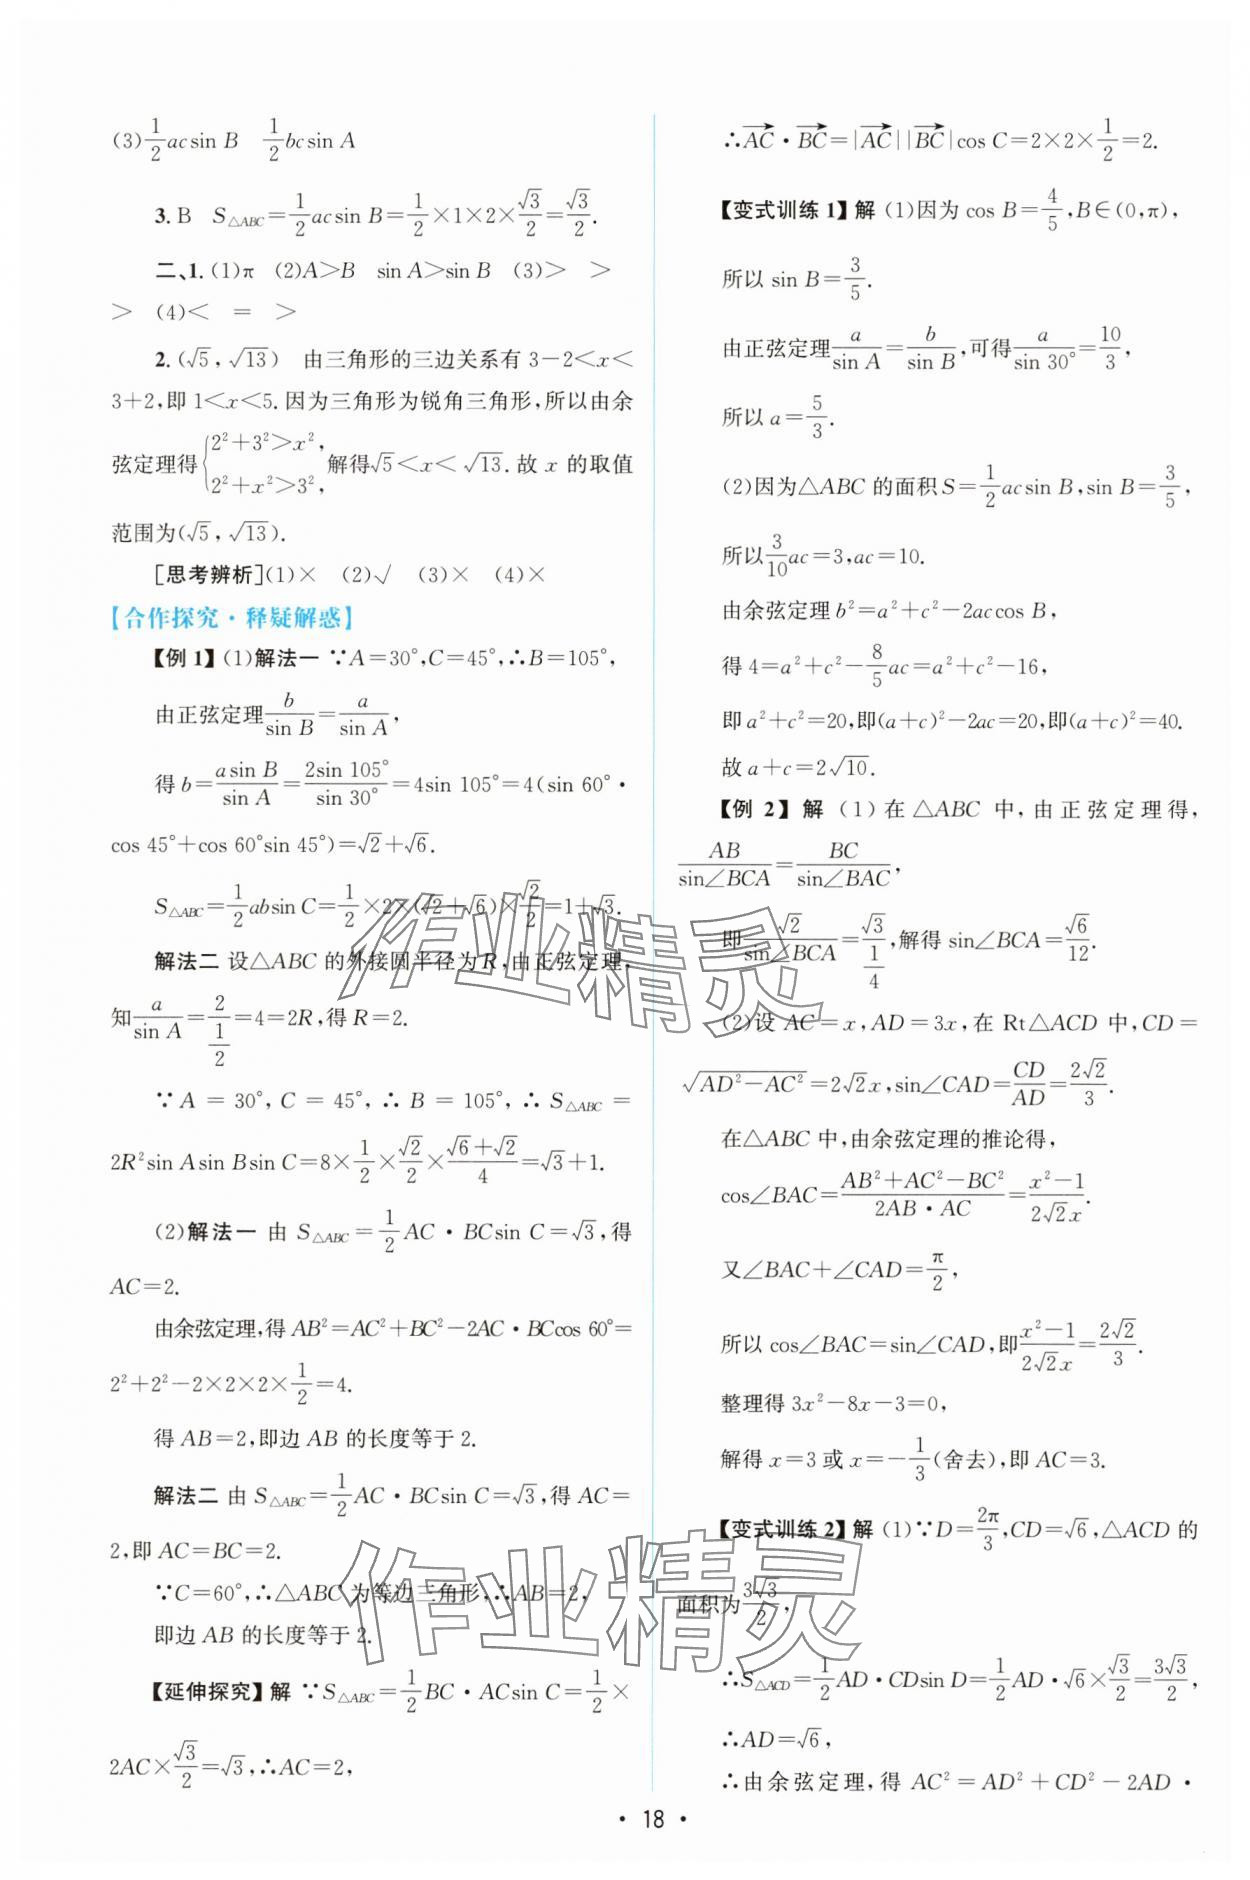 (3) \frac{1}{2}acsin B　\frac{1}{2}bcsin A
3. B　S_{△ABC}=\frac{1}{2}acsin B=\frac{1}{2}×1×2×\frac{√3}{2}=\frac{√3}{2}.
二、1. (1)π　(2)A＞B　sin A＞sin B　(3)＞　＞
＞　(4)＜　=　＞
2. (√5, √13)　由三角形的三边关系有 3-2＜x＜
3+2,即 1＜x＜5.因为三角形为锐角三角形,所以由余
弦定理得{2²+3²＞x², 2²+x²＞3², 解得√5＜x＜√13.故 x 的取值
范围为(√5, √13).
[思考辨析](1)×　(2)√　(3)×　(4)×
【合作探究·释疑解惑】
【例 1】(1)解法一 ∵A=30°,C=45°,∴B=105°,
由正弦定理\frac{b}{sin B}=\frac{a}{sin A},
得 b=\frac{asin B}{sin A}=\frac{2sin 105°}{sin 30°}=4sin 105°=4(sin 60°·
cos 45°+cos 60°sin 45°)=√2+√6.
S_{△ABC}=\frac{1}{2}absin C=\frac{1}{2}×2×(√2+√6)×\frac{√2}{2}=1+√3.
解法二 设△ABC 的外接圆半径为 R,由正弦定理,
知\frac{a}{sin A}=\frac{2}{\frac{1}{2}}=4=2R,得 R=2.
∵A = 30°, C = 45°, ∴ B = 105°, ∴ S_{△ABC} =
2R²sin Asin Bsin C=8×\frac{1}{2}×\frac{√2}{2}×\frac{√6+√2}{4}=√3+1.
(2)解法一 由 S_{△ABC}=\frac{1}{2}AC·BCsin C=√3,得
AC=2.
由余弦定理,得 AB²=AC²+BC²-2AC·BCcos 60°=
2²+2²-2×2×2×\frac{1}{2}=4.
得 AB=2,即边 AB 的长度等于 2.
解法二 由 S_{△ABC}=\frac{1}{2}AC·BCsin C=√3,得 AC=
2,即 AC=BC=2.
∵C=60°,∴△ABC 为等边三角形,∴AB=2,
即边 AB 的长度等于 2.
【延伸探究】解 ∵S_{△ABC}=\frac{1}{2}BC·ACsin C=\frac{1}{2}×
2AC×\frac{√3}{2}=√3,∴AC=2,
∴\overrightarrow{AC}·\overrightarrow{BC}=|\overrightarrow{AC}||\overrightarrow{BC}|cos C=2×2×\frac{1}{2}=2.
【变式训练 1】解 (1)因为 cos B=\frac{4}{5},B∈(0,π),
所以 sin B=\frac{3}{5}.
由正弦定理\frac{a}{sin A}=\frac{b}{sin B},可得\frac{a}{sin 30°}=\frac{10}{3},
所以 a=\frac{5}{3}.
(2)因为△ABC 的面积 S=\frac{1}{2}acsin B,sin B=\frac{3}{5},
所以\frac{3}{10}ac=3,ac=10.
由余弦定理 b²=a²+c²-2accos B,
得 4=a²+c²-\frac{8}{5}ac=a²+c²-16,
即 a²+c²=20,即(a+c)²-2ac=20,即(a+c)²=40.
故 a+c=2√10.
【例 2】 解 (1)在△ABC 中,由正弦定理得,
\frac{AB}{sin∠BCA}=\frac{BC}{sin∠BAC},
即\frac{√2}{sin∠BCA}=\frac{√3}{\frac{1}{4}},解得 sin∠BCA=\frac{√6}{12}.
(2)设 AC=x,AD=3x,在 Rt△ACD 中,CD=
√{AD²-AC²}=2√2x,sin∠CAD=\frac{CD}{AD}=\frac{2√2}{3}.
在△ABC 中,由余弦定理的推论得,
cos∠BAC=\frac{AB²+AC²-BC²}{2AB·AC}=\frac{x²-1}{2√2x}.
又∠BAC+∠CAD=\frac{π}{2},
所以 cos∠BAC=sin∠CAD,即\frac{x²-1}{2√2x}=\frac{2√2}{3}.
整理得 3x²-8x-3=0,
解得 x=3 或 x=-\frac{1}{3}(舍去),即 AC=3.
【变式训练 2】解 (1)∵D=\frac{2π}{3},CD=√6,△ACD 的
面积为\frac{3√3}{2},
∴S_{△ACD}=\frac{1}{2}AD·CDsin D=\frac{1}{2}AD·√6×\frac{√3}{2}=\frac{3√3}{2},
∴AD=√6,
∴由余弦定理,得 AC²=AD²+CD²-2AD·
·18·
作业精灵
作业精灵